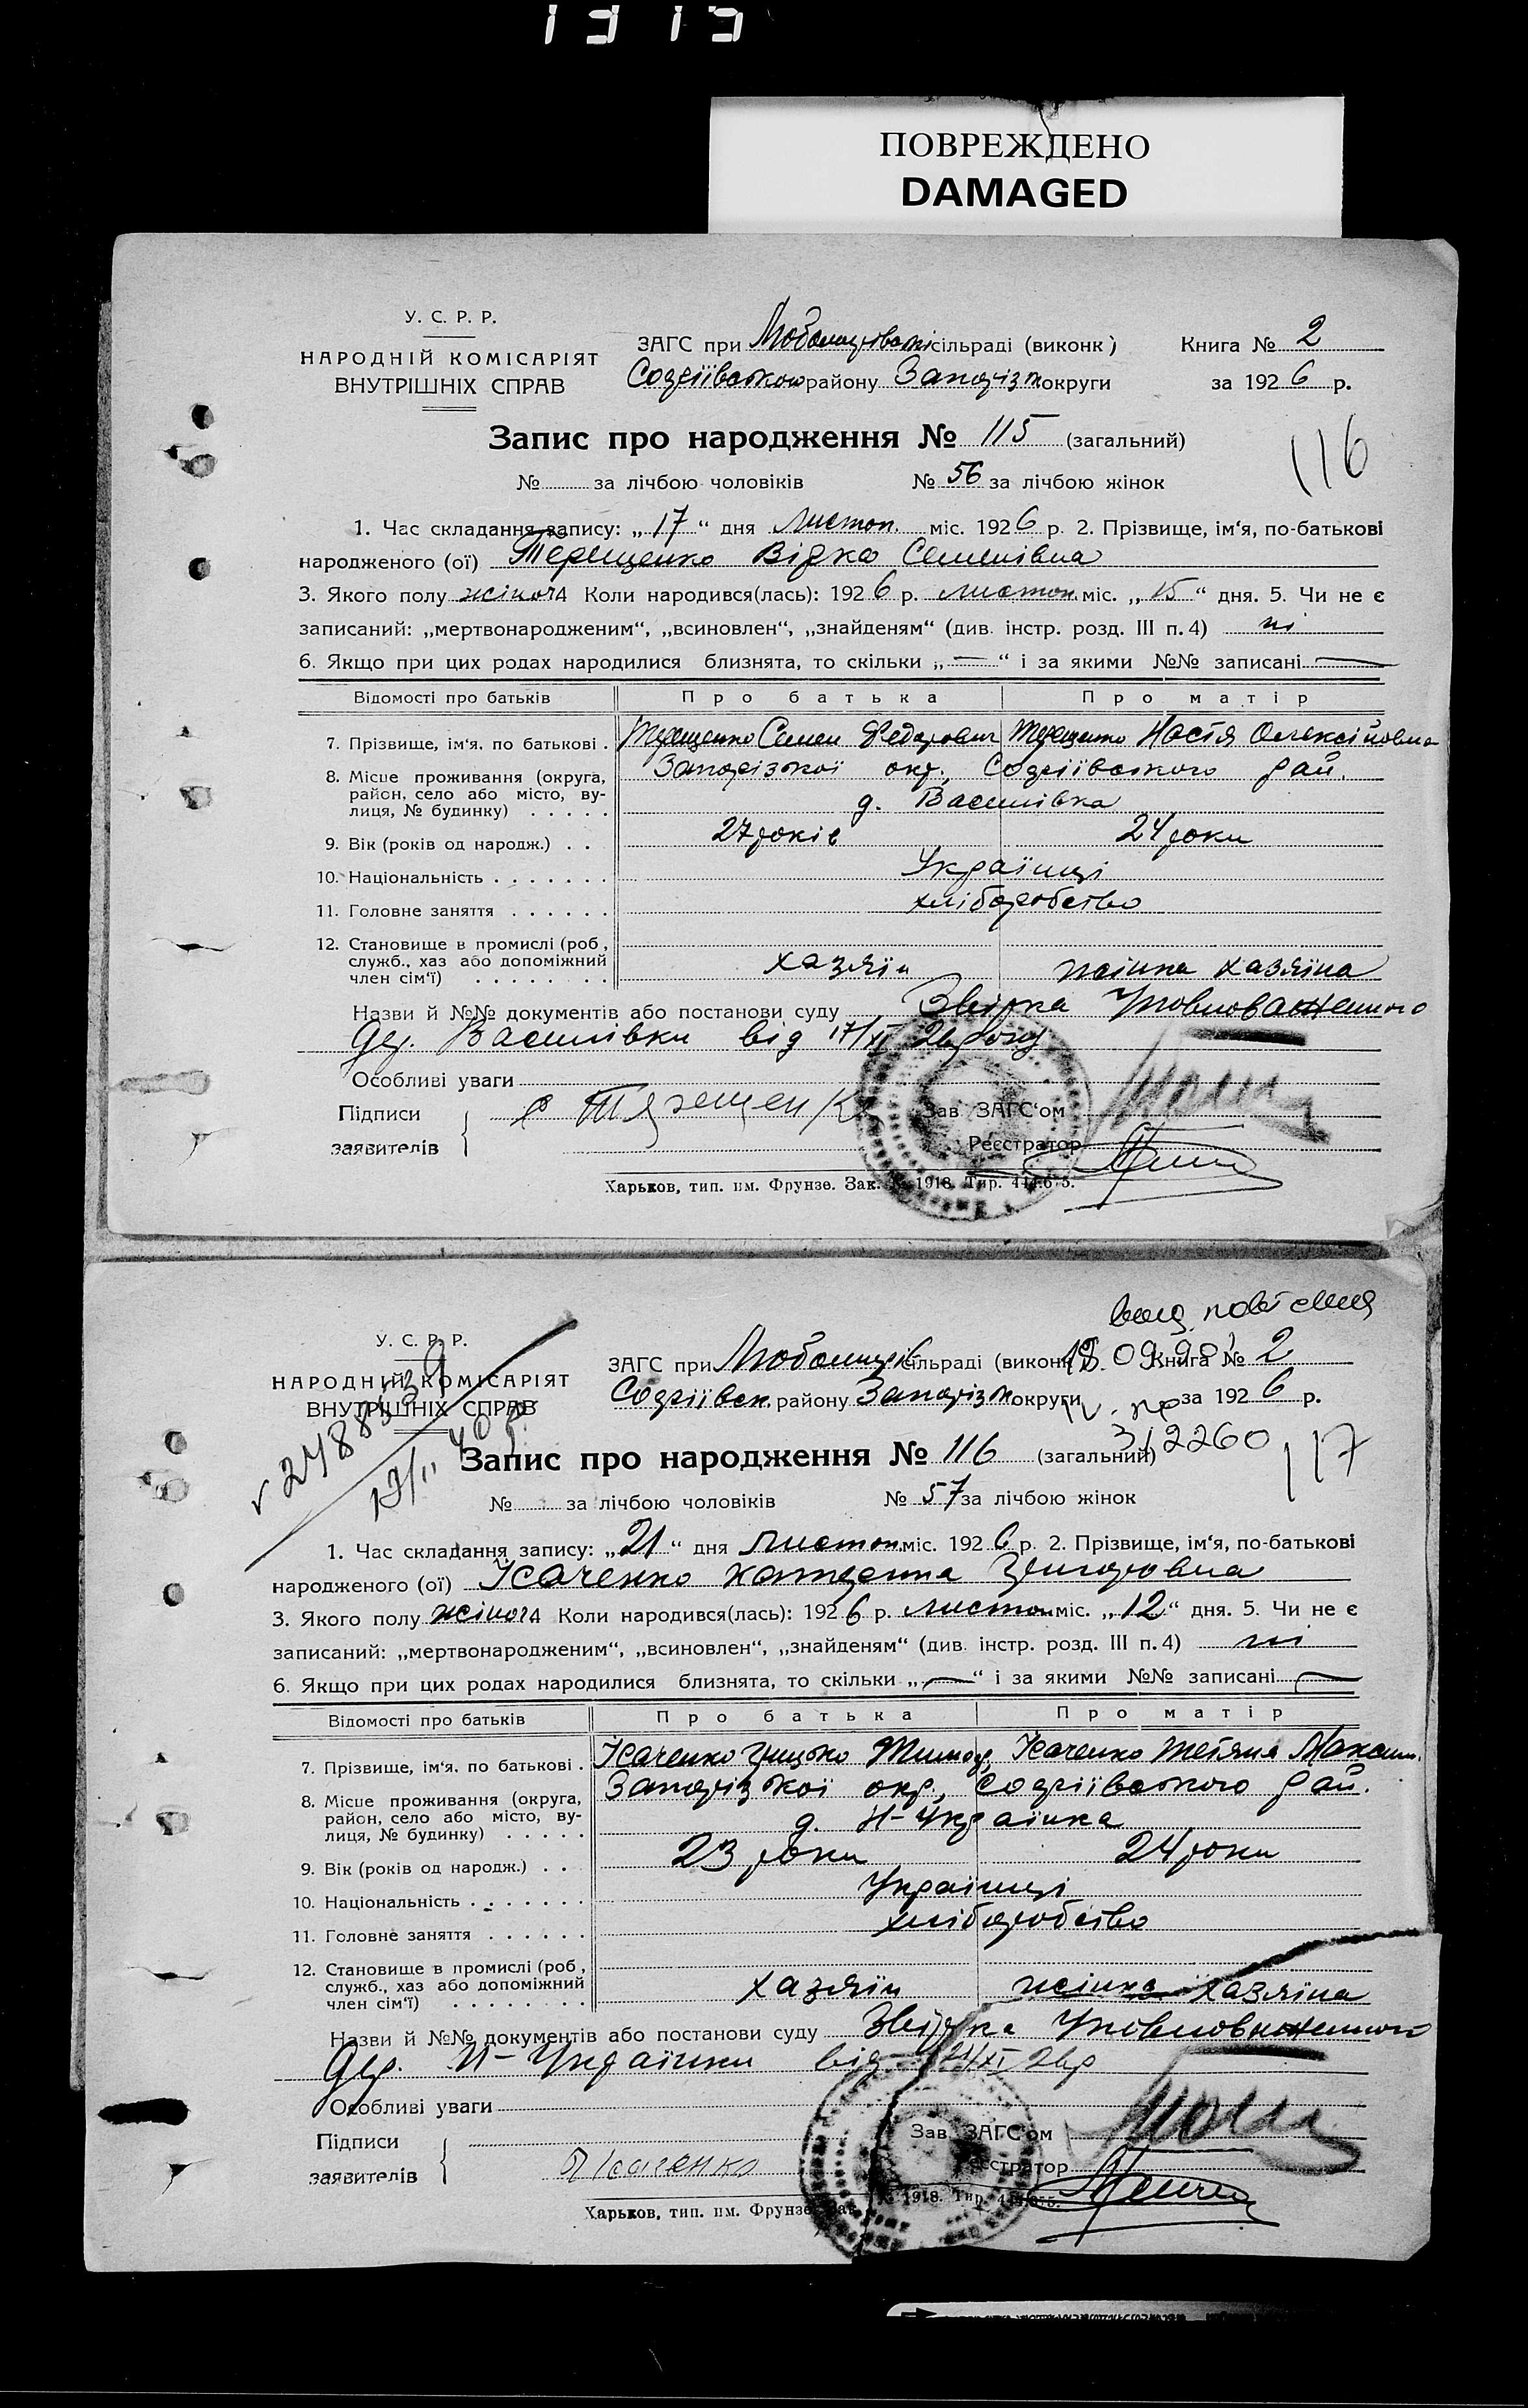 1313
ПОВРЕЖДЕНО
DAMAGED
У. С. Р. Р.
НАРОДНІЙ КОМІСАРІЯТ
ВНУТРІШНІХ СПРАВ
ЗАГС при сільраді (виконк) Книга № 2
Софіївського району Запорізьк округи за 1926 р.
Запис про народження № 115 (загальний)
116
№ за лічбою чоловіків № 56 за лічбою жінок
1. Час складання запису: „17“ дня листоп. міс. 1926 р. 2. Прізвище, ім‘я, по-батькові
народженого (ої) Терещенко Вірка Семенівна
3. Якого полу жіноч 4 Коли народився(лась): 1926 р. листоп. міс. „15“ дня. 5. Чи не є
записаний: „мертвонародженим“, „всиновлен“, „знайденям“ (див. інстр. розд. III п. 4) ні
6. Якщо при цих родах народилися близнята, то скільки „—“ і за якими №№ записані —
Відомості про батьків Про батька Про матір
7. Прізвище, ім‘я, по батькові . Терещенко Семен Федорович Терещенко Настя Олексійовна
8. Місце проживання (округа, Запорізької окр., Софіївського рай.
район, село або місто, ву-
лиця, № будинку) . . . . . д. Василівка
9. Вік (років од народж.) . . 27 років 24 роки
10. Національність . . . . . . . Українці
11. Головне заняття . . . . . . хліборобство
12. Становище в промислі (роб,
служб., хаз або допоміжний хазяїн жінка хазяїна
член сім‘ї) . . . . . . . .
Назви й №№ документів або постанови суду Звірка Уповноваженого
дер. Василівки від 17/XI 26 року
Особливі уваги
Підписи
заявителів
Зав. ЗАГС‘ом
Реєстратор
Харьков, тип. им. Фрунзе. Зак. № 1918. Тир. 444.675.
У. С. Р. Р.
НАРОДНІЙ КОМІСАРІЯТ
ВНУТРІШНІХ СПРАВ
ЗАГС при сільраді (виконк) Книга № 2
Софіївськ. району Запорізьк округи за 1926 р.
312260
Запис про народження № 116 (загальний)
117
№ за лічбою чоловіків № 57 за лічбою жінок
1. Час складання запису: „21“ дня листоп міс. 1926 р. 2. Прізвище, ім‘я, по-батькові
народженого (ої) Ісаченко Катерина Григоровна
3. Якого полу жіноч 4 Коли народився(лась): 1926 р. листоп міс. „12“ дня. 5. Чи не є
записаний: „мертвонародженим“, „всиновлен“, „знайденям“ (див. інстр. розд. III п. 4) ні
6. Якщо при цих родах народилися близнята, то скільки „—“ і за якими №№ записані —
Відомості про батьків Про батька Про матір
7. Прізвище, ім‘я, по батькові . Ісаченко Грицько Тимоф. Ісаченко Тетяна Максим.
8. Місце проживання (округа, Запорізької окр., Софіївського рай.
район, село або місто, ву-
лиця, № будинку) . . . . . д. Н-Українка
9. Вік (років од народж.) . . 23 роки 24 роки
10. Національність . . . . . . . Українці
11. Головне заняття . . . . . . хліборобство
12. Становище в промислі (роб,
служб., хаз або допоміжний хазяїн жінка хазяїна
член сім‘ї) . . . . . . . .
Назви й №№ документів або постанови суду Звірка Уповноваженого
дер. Н-Українки від 21/XI 26 р
Особливі уваги
Підписи
заявителів Ісаченко
Зав. ЗАГС‘ом
Реєстратор
Харьков, тип. им. Фрунзе. Зак. № 1918. Тир. 444.675.